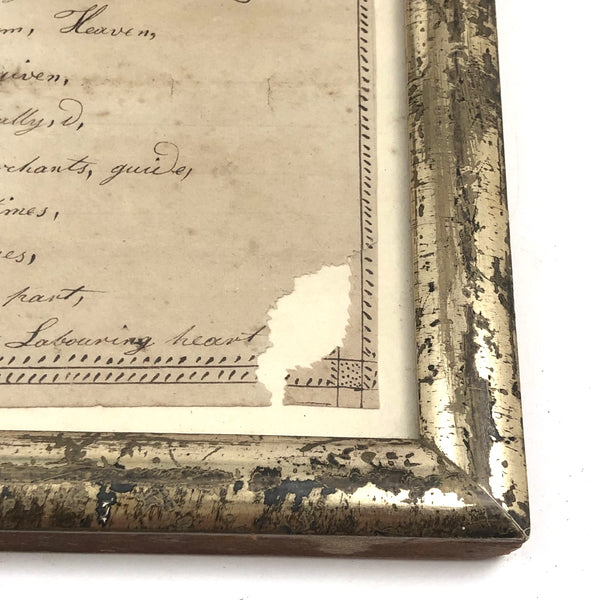 m, Heaven,
given,
ally,d,
rchants, guide,
times,
es,
part,
Labouring heart